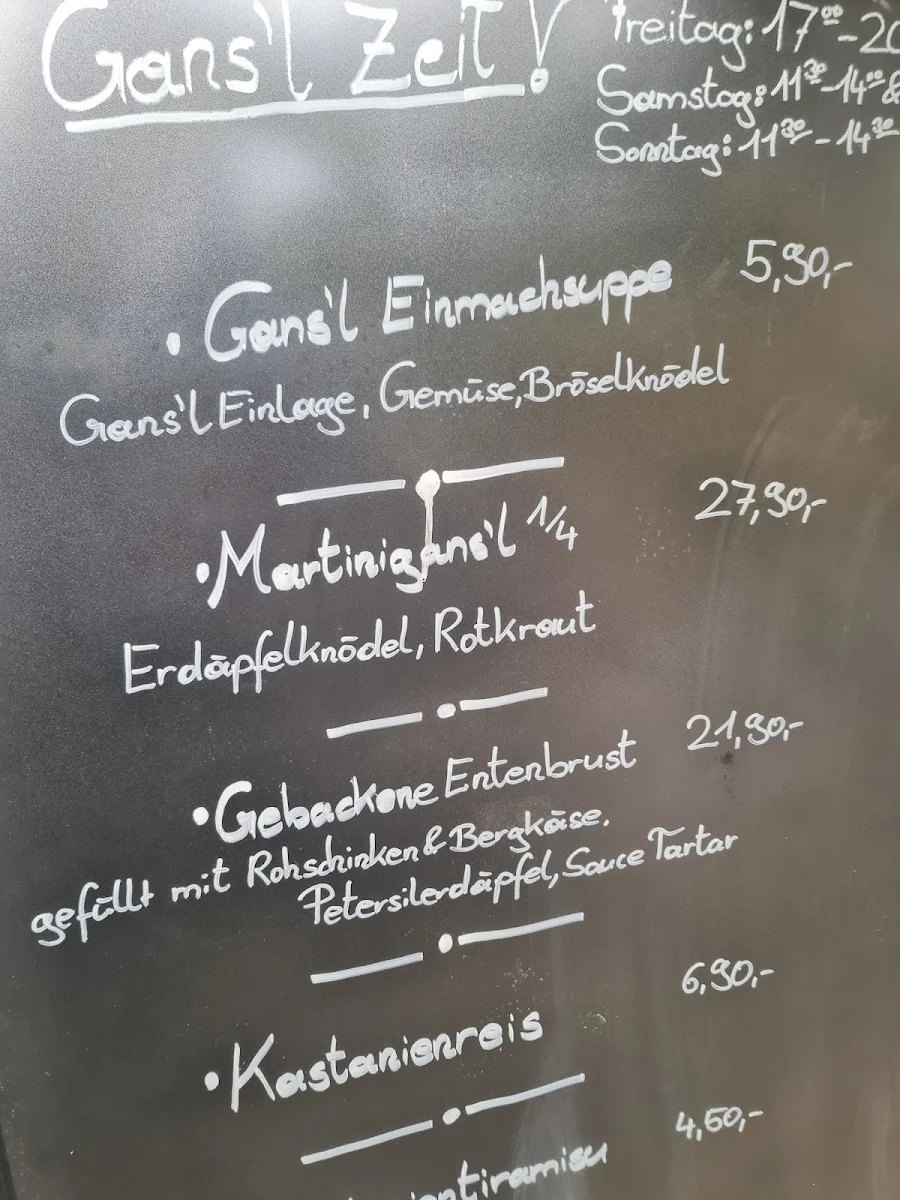 Gans'l Zeit!
Freitag: 17⁰⁰-20
Samstag: 11³⁰-14⁰⁰ &
Sonntag: 11³⁰-14³⁰
• Gans'l Einmachsuppe 5,90,-
Gans'l Einlage, Gemüse, Bröselknödel
• Martinigans'l 1/4 27,90,-
Erdäpfelknödel, Rotkraut
• Gebackene Entenbrust 21,90,-
gefüllt mit Rohschinken & Bergkäse.
Petersilerdäpfel, Sauce Tartar
• Kastanienreis 6,90,-
4,50,-